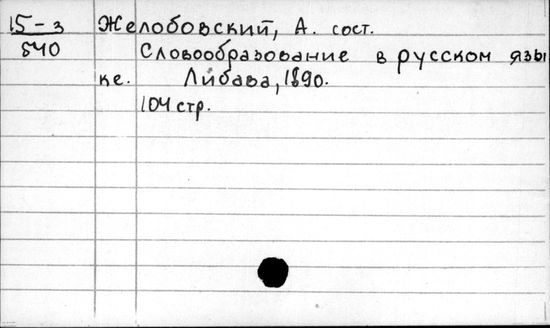 15-з Желобовский, А. сост.
840 Словообразование в русском язы
ке. Либава, 1890.
104 стр.